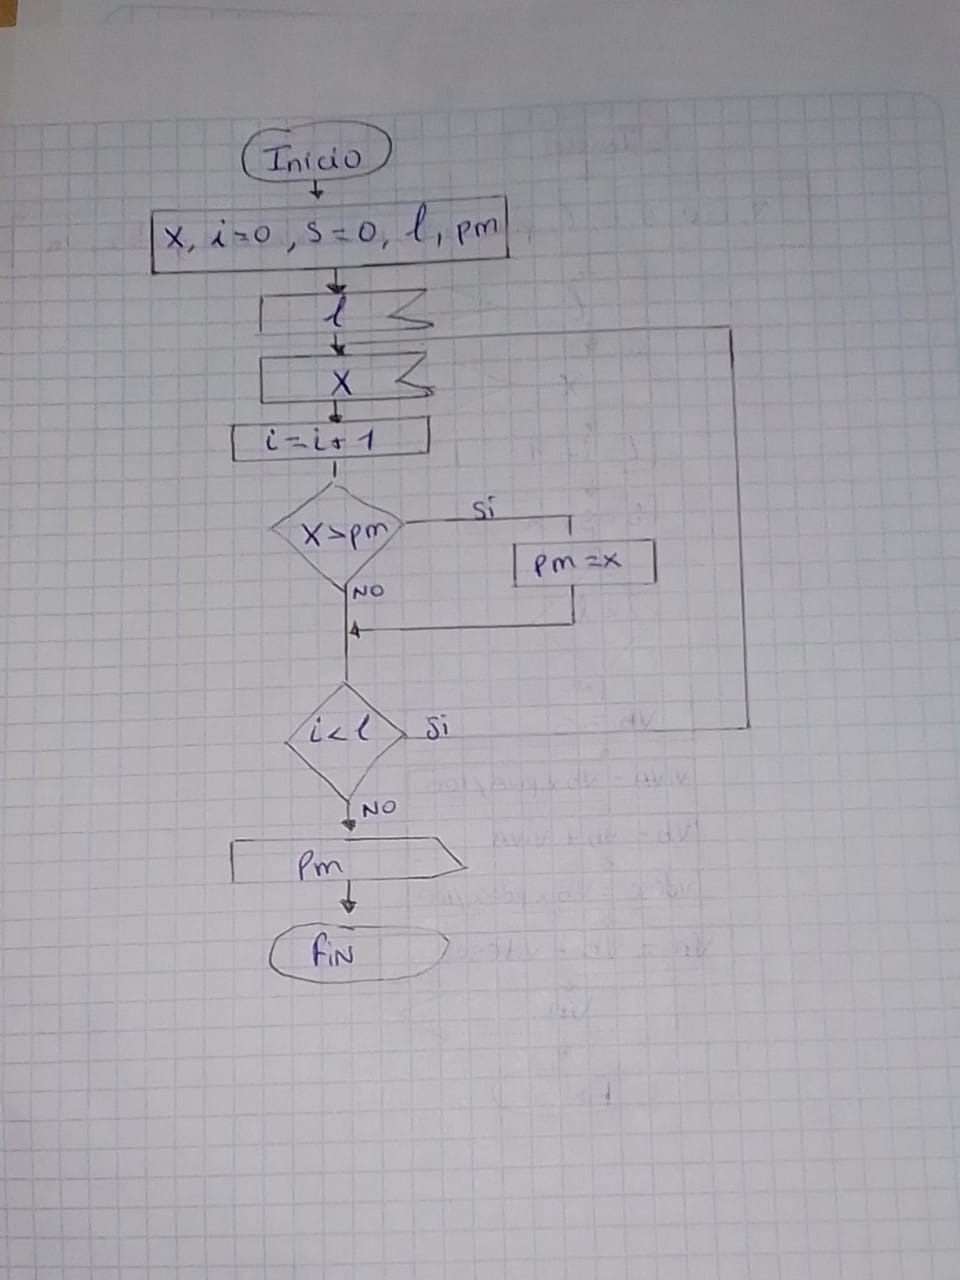 Inicio
x, i=0, s=0, l, pm
l
x
i=i+1
x>pm
Si
pm=x
NO
i<l
Si
NO
Pm
FiN